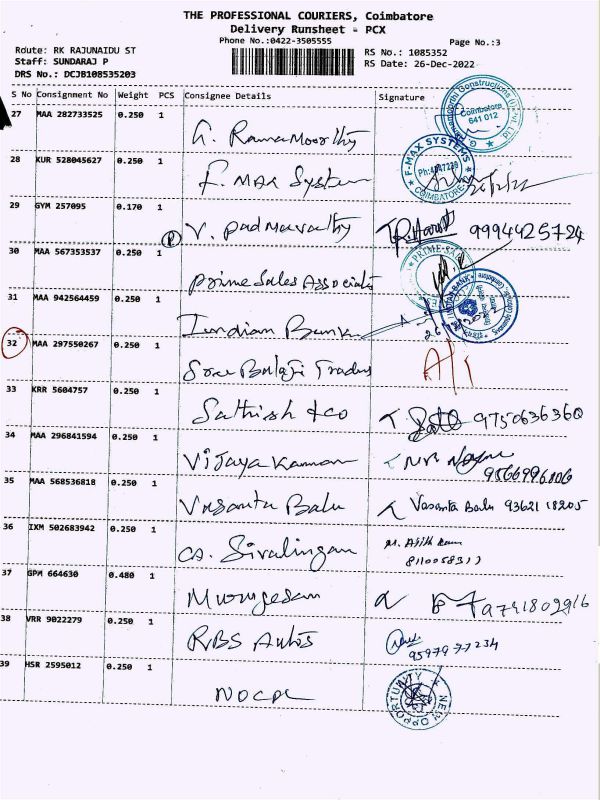 THE PROFESSIONAL COURIERS, Coimbatore
Delivery Runsheet - PCX
Phone No.:0422-3505555
Page No.:3
Route: RK RAJUNAIDU ST
Staff: SUNDARAJ P
DRS No.: DCJB108535203
RS No.: 1085352
RS Date: 26-Dec-2022
S No Consignment No Weight PCS Consignee Details Signature
27 MAA 282733525 0.250 1
G. Ramamoorthy
Constructions (I) Pvt. Ltd
Coimbatore
641 012
28 KUR 528045627 0.250 1
F. MAX System
F-MAX SYSTEMS
COIMBATORE
26/12/22
29 GYM 257095 0.170 1
P V. Padmavathy 9994425724
30 MAA 567353537 0.250 1
Prime Sales Associats
PRIME SAL
31 MAA 942564459 0.250 1
Indian Bank
32 MAA 297550267 0.250 1
Sree Balaji Traders
33 KRR 5604757 0.250 1
Sathish & co 9750636360
34 MAA 296841594 0.250 1
Vijaya Kannan
9566996806
35 MAA 568536818 0.250 1
Vasanta Balu Vasanta Balu 9362118205
36 IXM 502683942 0.250 1
CS. Sivalingam
37 GPM 664630 0.480 1
Murugesan 9741802916
38 VRR 9022279 0.250 1
RBS Autos
9597977234
39 HSR 2595012 0.250 1
NOCPL
NEW OPPORTUNITY